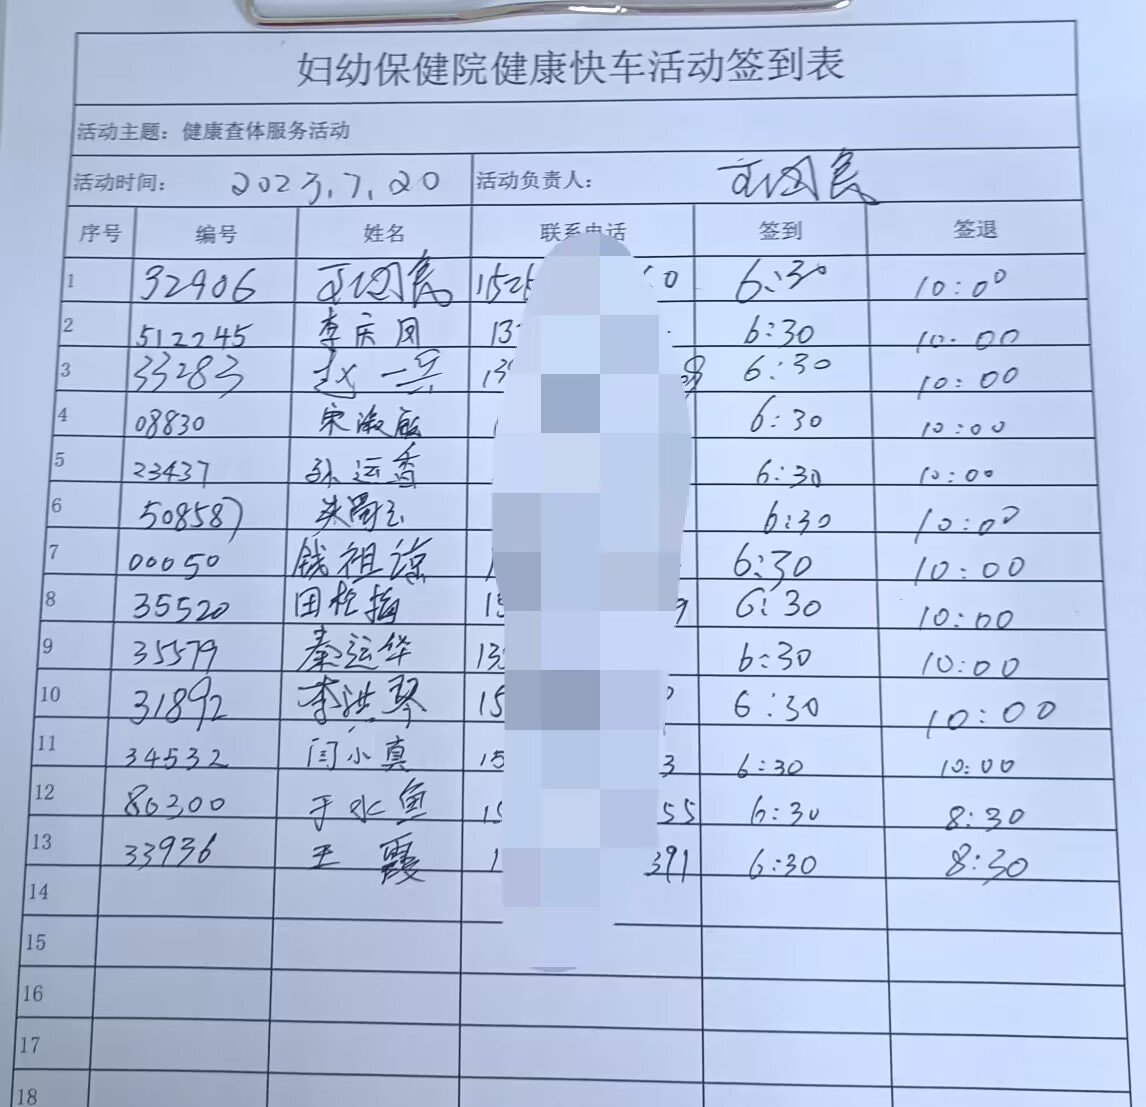 妇幼保健院健康快车活动签到表
活动主题：健康查体服务活动
活动时间： 2023.7.20 活动负责人：
序号 编号 姓名 联系电话 签到 签退
1 32906 6:30 10:00
2 512245 李庆凤 13 6:30 10:00
3 33283 赵一兵 6:30 10:00
4 08830 宋淑敏 6:30 10:00
5 23437 孙运香 6:30 10:00
6 50858 6:30 10:00
7 00050 钱祖谅 6:30 10:00
8 35520 田栓梅 6:30 10:00
9 35579 秦运华 13 6:30 10:00
10 31892 李洪琴 15 6:30 10:00
11 34532 闫小真 15 3 6:30 10:00
12 80300 于水鱼 55 6:30 8:30
13 33936 王霞 1 391 6:30 8:30
14
15
16
17
18